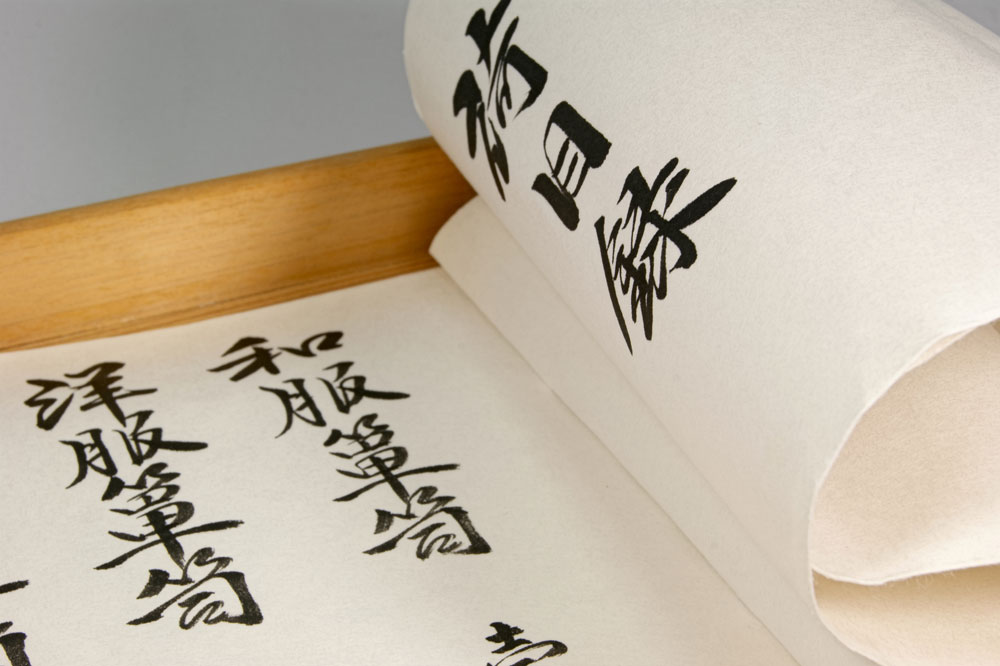 荷目録
和服箪笥
洋服箪笥